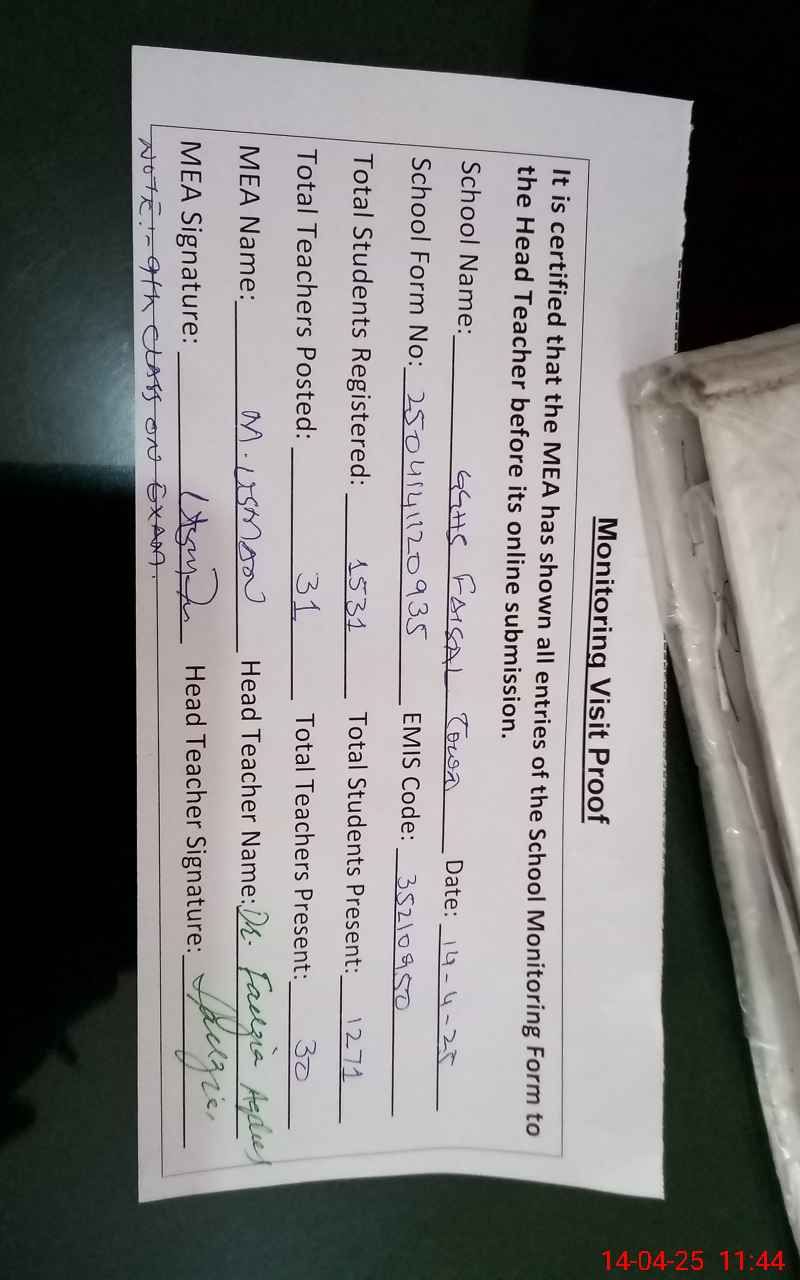 Monitoring Visit Proof
It is certified that the MEA has shown all entries of the School Monitoring Form to
the Head Teacher before its online submission.
School Name: GGHS FAISAL Town Date: 14-4-25
School Form No: 2504141120935 EMIS Code: 35210950
Total Students Registered: 1531 Total Students Present: 1271
Total Teachers Posted: 31 Total Teachers Present: 30
MEA Name: M. USMAN Head Teacher Name: Dr. Fauzia
MEA Signature: Head Teacher Signature: Fauzia
NOTE:- 9th CLASS ON EXAM.
14-04-25 11:44